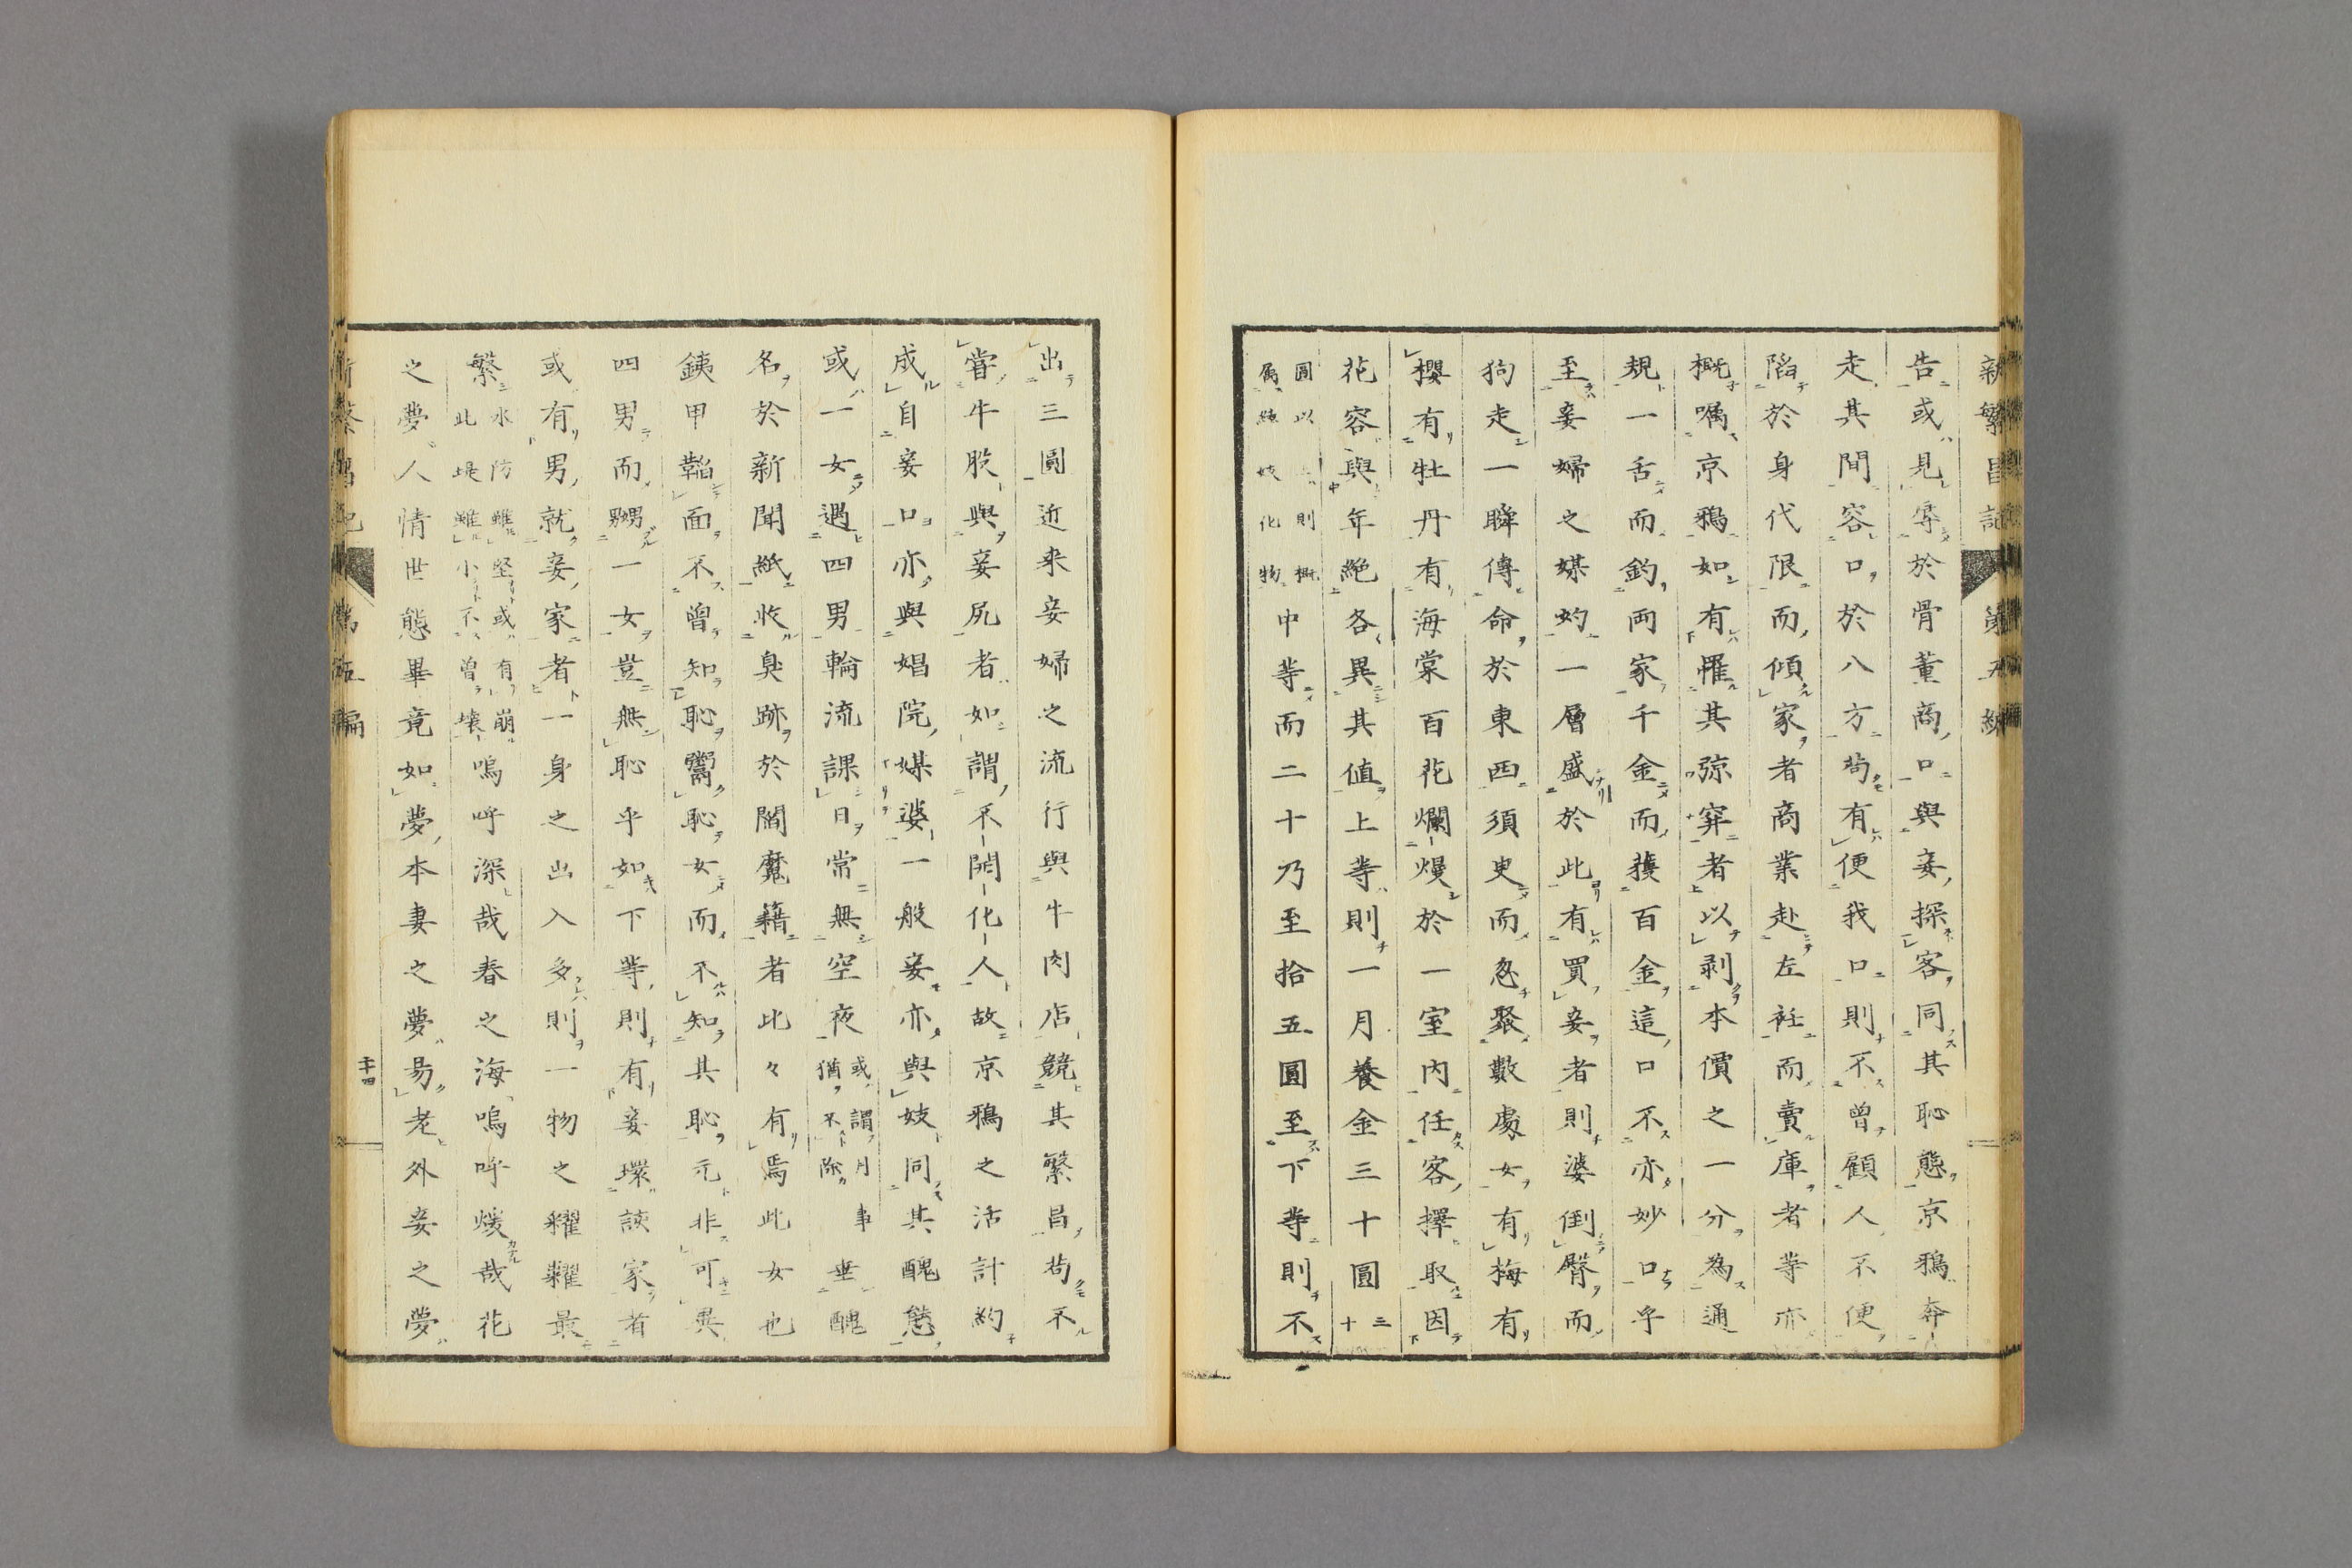 新繁昌記
告或見辱於骨董商口與妾探客同其恥態京鴉奔
走其間容口於八方苟有便我口則不曾顧人不便
陷於身代限而傾家者商業赴左衽而賣庫者等亦
概嘱京鴉如有罹其弥穽者以剥本價之一分為通
規一舌而釣両家千金而獲百金這口不亦妙口乎
至妾婦之媒妁一層盛於此有買妾者則婆倒臀而
狗走一瞬傳命於東西須臾而忽聚數處女有梅有
櫻有牡丹有海棠百花爛熳於一室内任客擇取因
花容與年絶各異其値上等則一月養金三十圓二十
圓以上則概
属絶妓化物
中等而二十乃至拾五圓至下等則不
出三圓近来妾婦之流行與牛肉店競其繁昌苟不
甞牛股與妾尻者如謂不開化人故京鴉之活計約
成自妾口亦與娼院媒婆一般妾亦與妓同其醜態
或一女遇四男輪流課日常無空夜
或謂月事
猶不除
垂醜
名於新聞紙收臭跡於閻魔籍者此々有焉此女也
銕甲鞱面不曾知恥鬻恥女而不知其恥元非可異
四男而嬲一女豈無恥乎如下等則有妾環諛家者
或有男就妾家者一身之出入多則一物之糶糴最
繁
水防雖堅或有崩
此堤雖小不曾壊
嗚呼深哉春之海嗚呼煖哉花
之夢人情世態畢竟如夢本妻之夢易老外妾之夢
五編
二十四